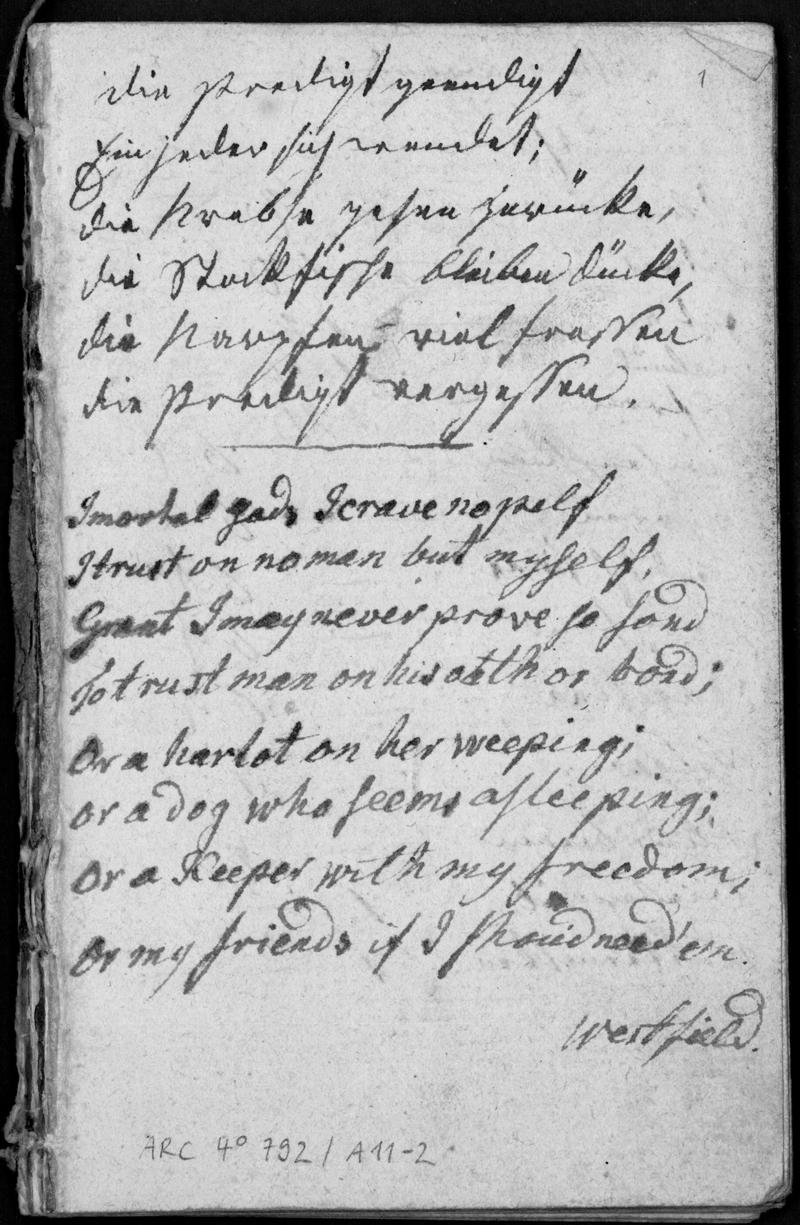 1
die Predigt geendigt
Ein jeder sich wendet;
die Krebse gehen zurücke,
die Stockfische bleiben dücke,
die Karpfen viel fressen
die Predigt vergessen.
Imortal gods I crave no pelf
I trust on no man but myself,
Grant I may never prove so fond
To trust man on his oath or bond;
Or a harlot on her weeping;
or a dog who seems asleeping;
Or a Keeper with my freedom;
Or my friends if I shou'd need'em.
Westfield.
ARC 4° 792 / A11-2